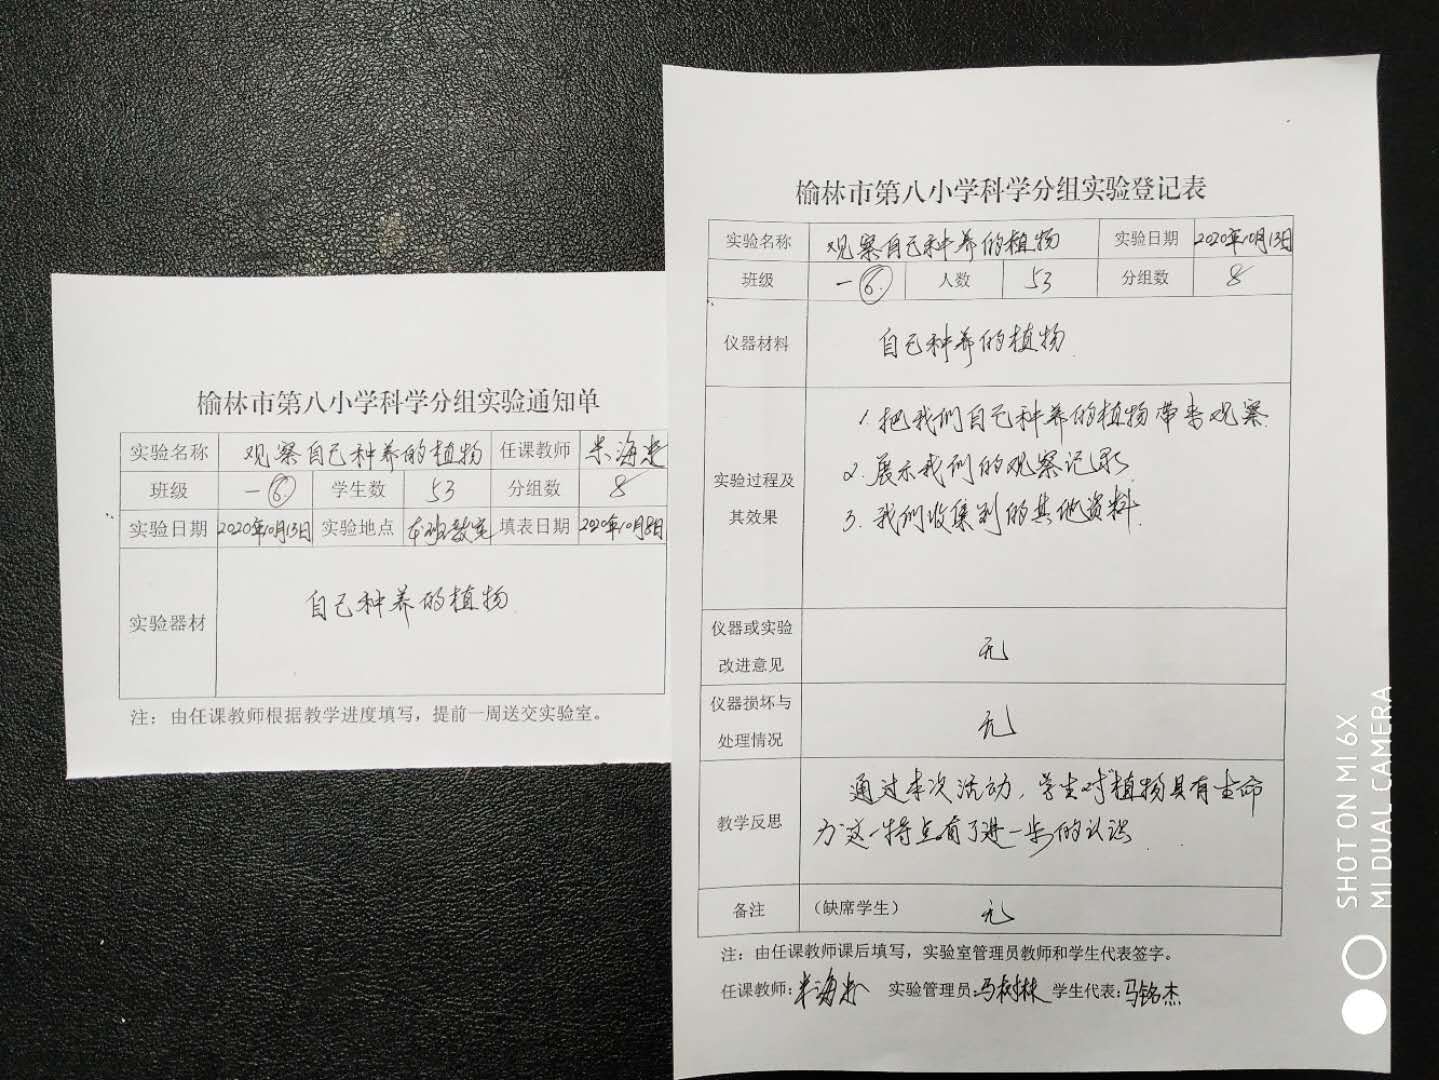 榆林市第八小学科学分组实验通知单
实验名称 观察自己种养的植物 任课教师 米海
班级 一⑥ 学生数 53 分组数 8
实验日期 2020年10月13日 实验地点 本班教室 填表日期 2020年10月8日
实验器材 自己种养的植物
注：由任课教师根据教学进度填写，提前一周送交实验室。
榆林市第八小学科学分组实验登记表
实验名称 观察自己种养的植物 实验日期 2020年10月13日
班级 一⑥ 人数 53 分组数 8
仪器材料 自己种养的植物
实验过程及其效果
1. 把我们自己种养的植物带来观察.
2. 展示我们的观察记录
3. 我们收集到的其他资料.
仪器或实验改进意见 无
仪器损坏与处理情况 无
教学反思 通过本次活动，学生对"植物具有生命
力"这一特点有了进一步的认识.
备注 （缺席学生） 无
注：由任课教师课后填写，实验室管理员教师和学生代表签字。
任课教师：米海 实验管理员：马树林 学生代表：马铭杰
SHOT ON MI 6X
MI DUAL CAMERA